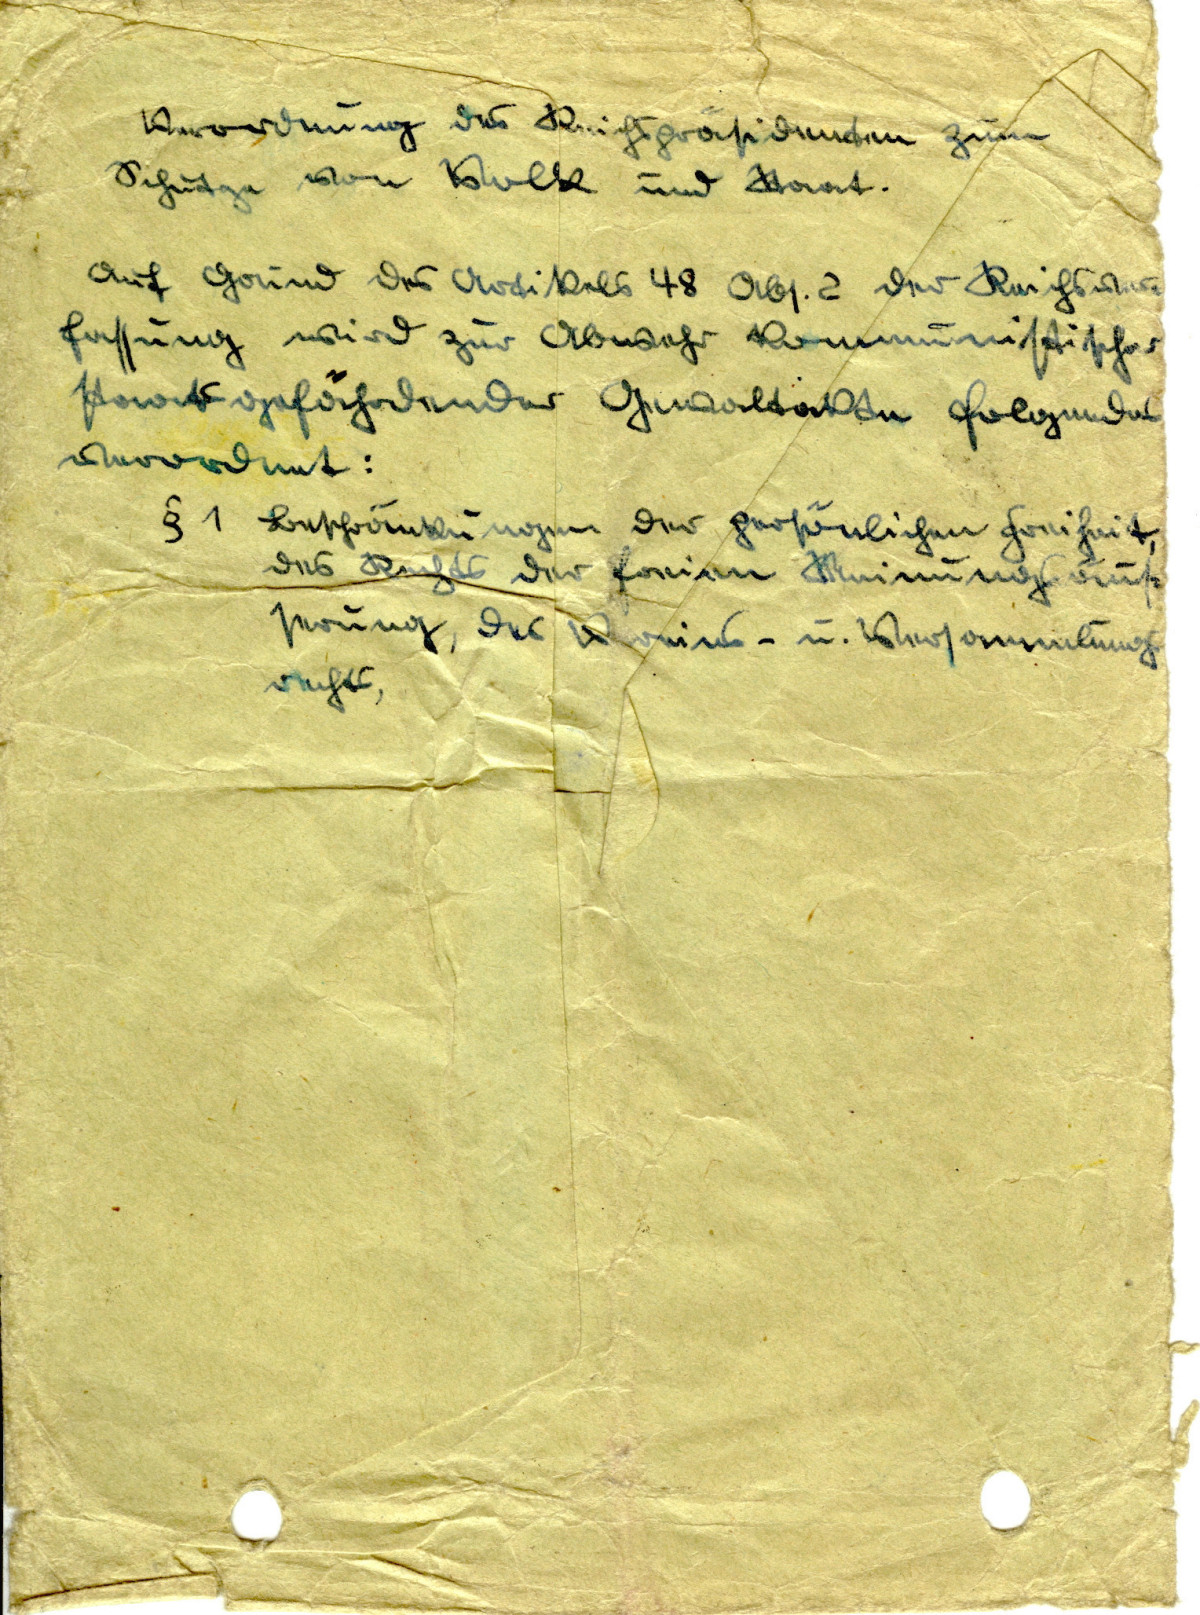 Verordnung des Reichspräsidenten zum
Schutze von Volk und Staat.
Auf Grund des Artikels 48 Abs. 2 der Reichsver-
fassung wird zur Abwehr kommunistischer
staatsgefährdender Gewaltakte folgendes
verordnet:
§ 1 Beschränkungen der persönlichen Freiheit,
des Rechts der freien Meinungsäus-
serung, des Vereins- u. Versammlungs
rechts,